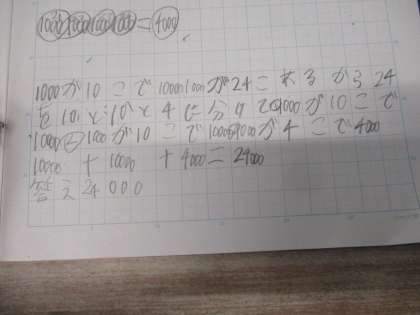 1000 1000 1000 1000 = 4000
1000が10こで10000 1000が24こあるから24
を10と10と4に分けて1000が10こで
10000 1000が10こで10000 1000が4こで4000
10000 + 10000 + 4000 = 24000
答え 24000